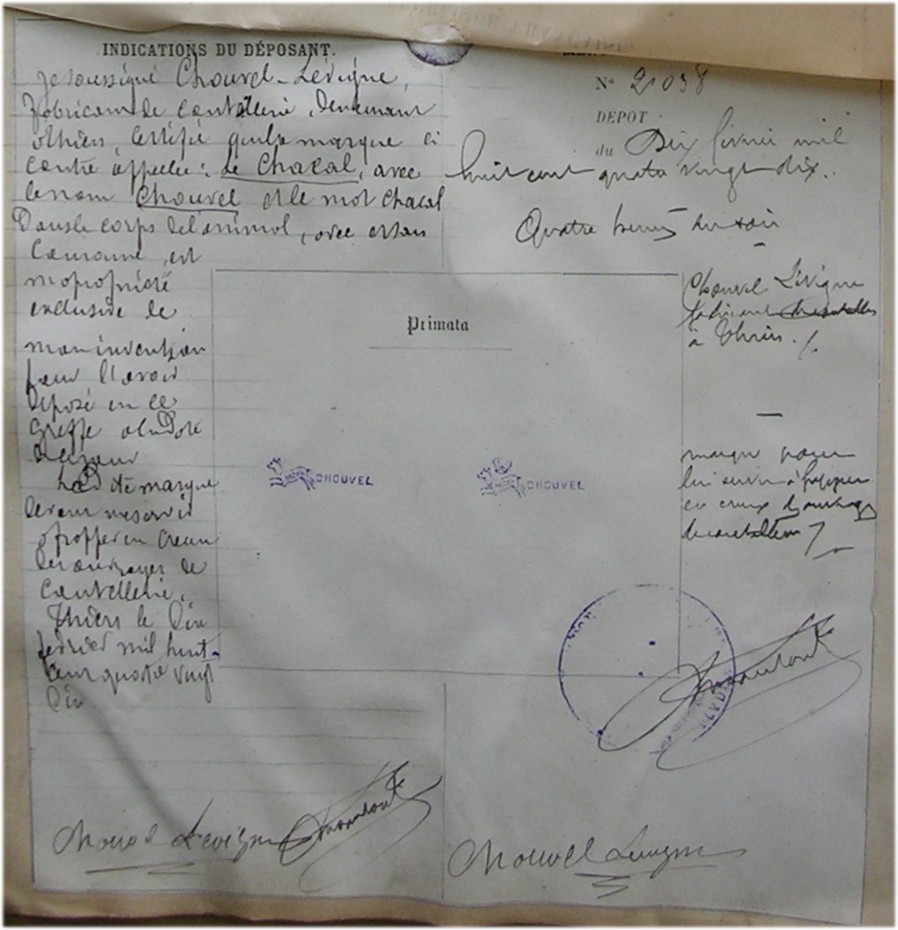 INDICATIONS DU DÉPOSANT.
Je soussigné Chouvel-Lévigne
fabricant de coutellerie, demeurant
à Thiers, certifie que la marque ci
contre appelée: Le Chacal, avec
le nom Chouvel et le mot Chacal
Dans le corps de l'animal, avec et sans
Couronne, est
ma propriété
exclusive de
mon invention
pour l'avoir
déposé en ce
Greffe
La dte marque
devant me servir
à frapper en creux
les ouvrages de
coutellerie.
Thiers le Dix
février mil huit
cent quatre vingt
Dix
N° 2038
DÉPOT
du Dix février mil
huit cent quatre vingt dix.
Quatre heures du soir
Primata
CHOUVEL
CHOUVEL
Chouvel Lévigne
fabricant
à Thiers.
marque pour
lui servir à frapper
en creux
Chouvel Levigne
Chouvel Levigne